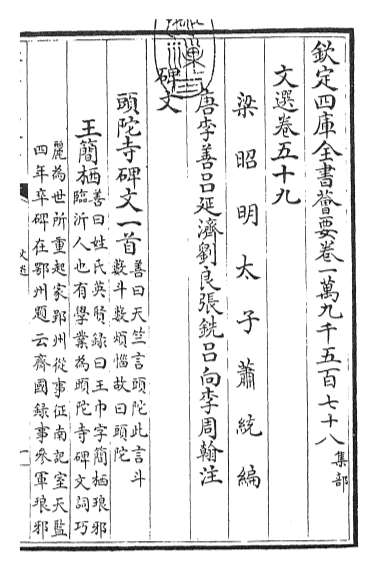 欽定四庫全書薈要卷一萬九千五百七十八 集部
文選卷五十九
梁昭明太子蕭統編
唐李善吕延濟劉良張銑吕向李周翰注
碑文
頭陀寺碑文一首 善曰天竺言頭陀此言斗
數斗數煩惱故曰頭陀
王簡栖 善曰姓氏英賢錄曰王巾字簡栖琅邪
臨沂人也有學業為頭陀寺碑文詞巧
麗為世所重起家郢州從事征南記室天監
四年卒碑在鄂州題云齊國錄事參軍琅邪